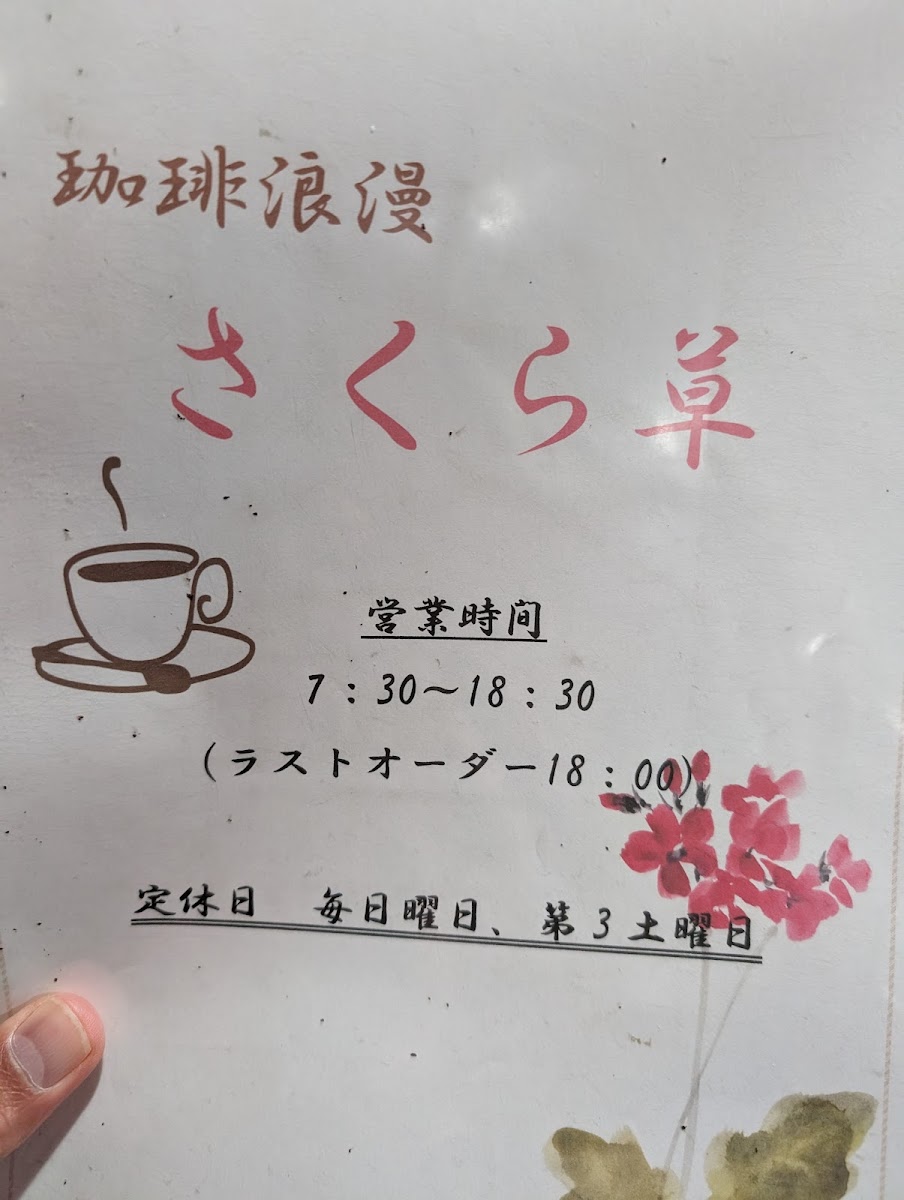 珈琲浪漫
さくら草
営業時間
7：30～18：30
（ラストオーダー18：00）
定休日　毎日曜日、第3土曜日